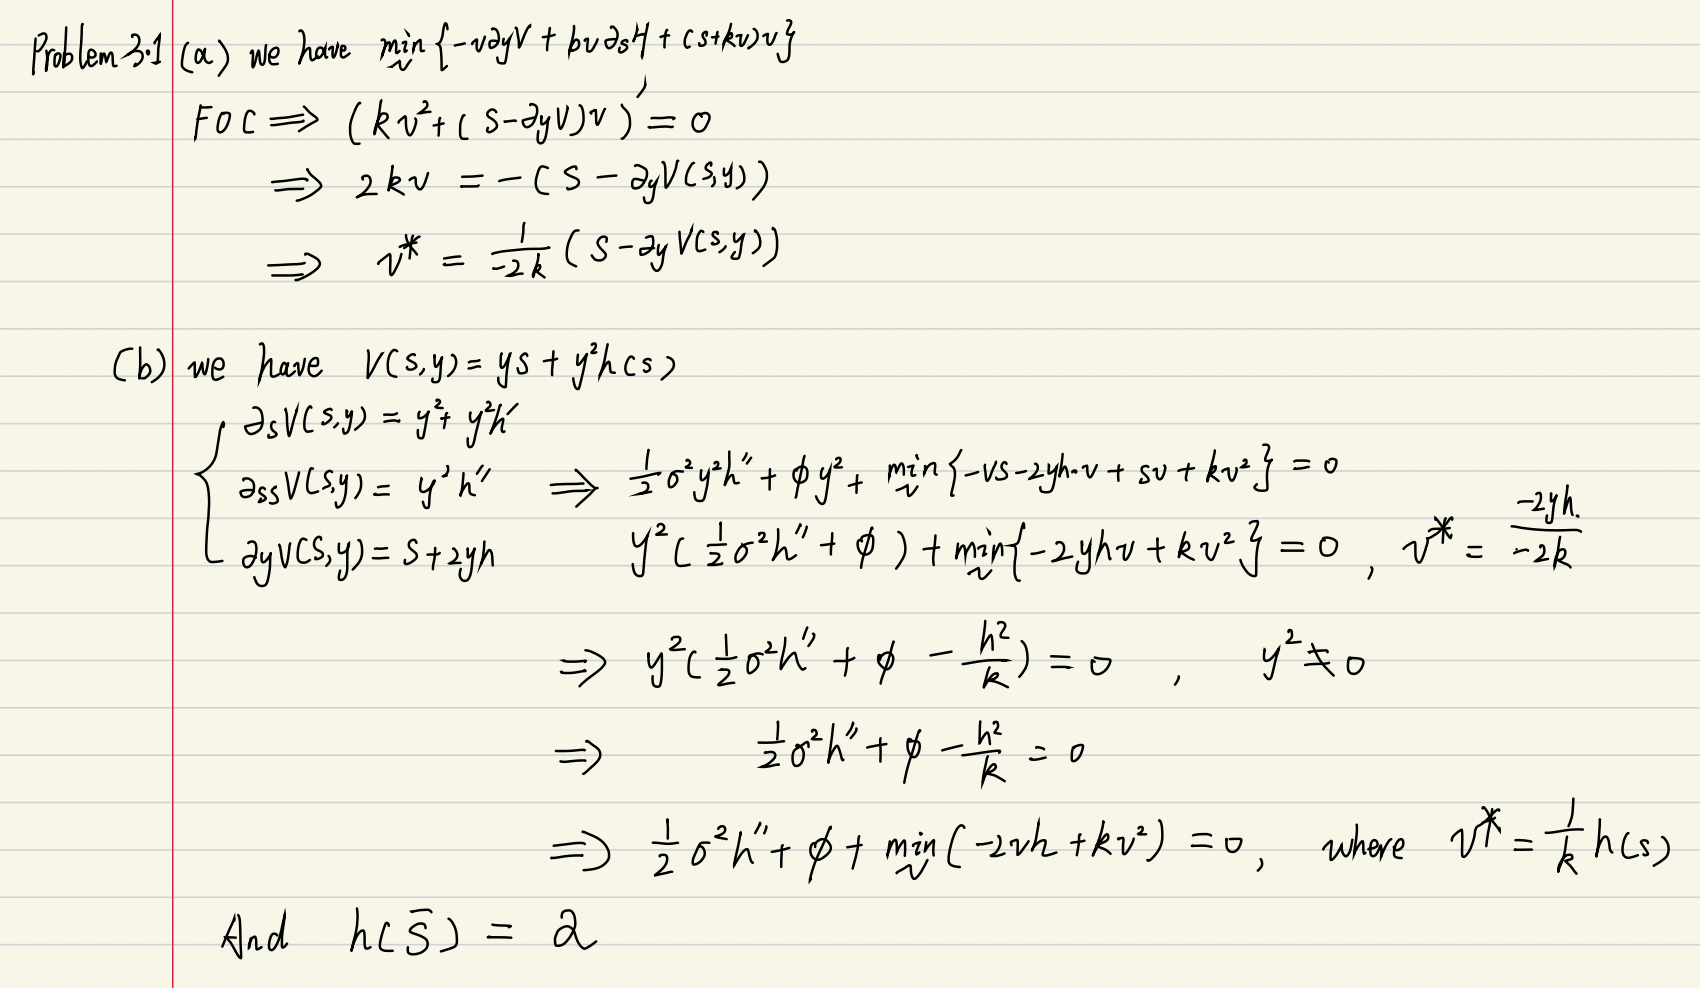 Problem 3.1 (a) we have min_v {-v∂yV + bv∂sH + (s+kv)v}
FOC ⇒ (kv² + (S-∂yV)v)' = 0
⇒ 2kv = -(S - ∂yV(s,y))
⇒ v* = 1/(-2k) (S - ∂yV(s,y))
(b) we have V(s,y) = ys + y²h(s)
∂sV(s,y) = y² + y²h'
∂ssV(s,y) = y²h'' ⇒ 1/2 σ²y²h'' + ϕy² + min_v {-vs-2yh·v + sv + kv²} = 0
∂yV(s,y) = S + 2yh y²(1/2 σ²h'' + ϕ) + min_v {-2yhv + kv²} = 0, v* = -2yh./-2k
⇒ y²(1/2 σ²h'' + ϕ - h²/k) = 0, y² ≠ 0
⇒ 1/2 σ²h'' + ϕ - h²/k = 0
⇒ 1/2 σ²h'' + ϕ + min_v (-2vh + kv²) = 0, where v* = 1/k h(s)
And h(S̄) = 2